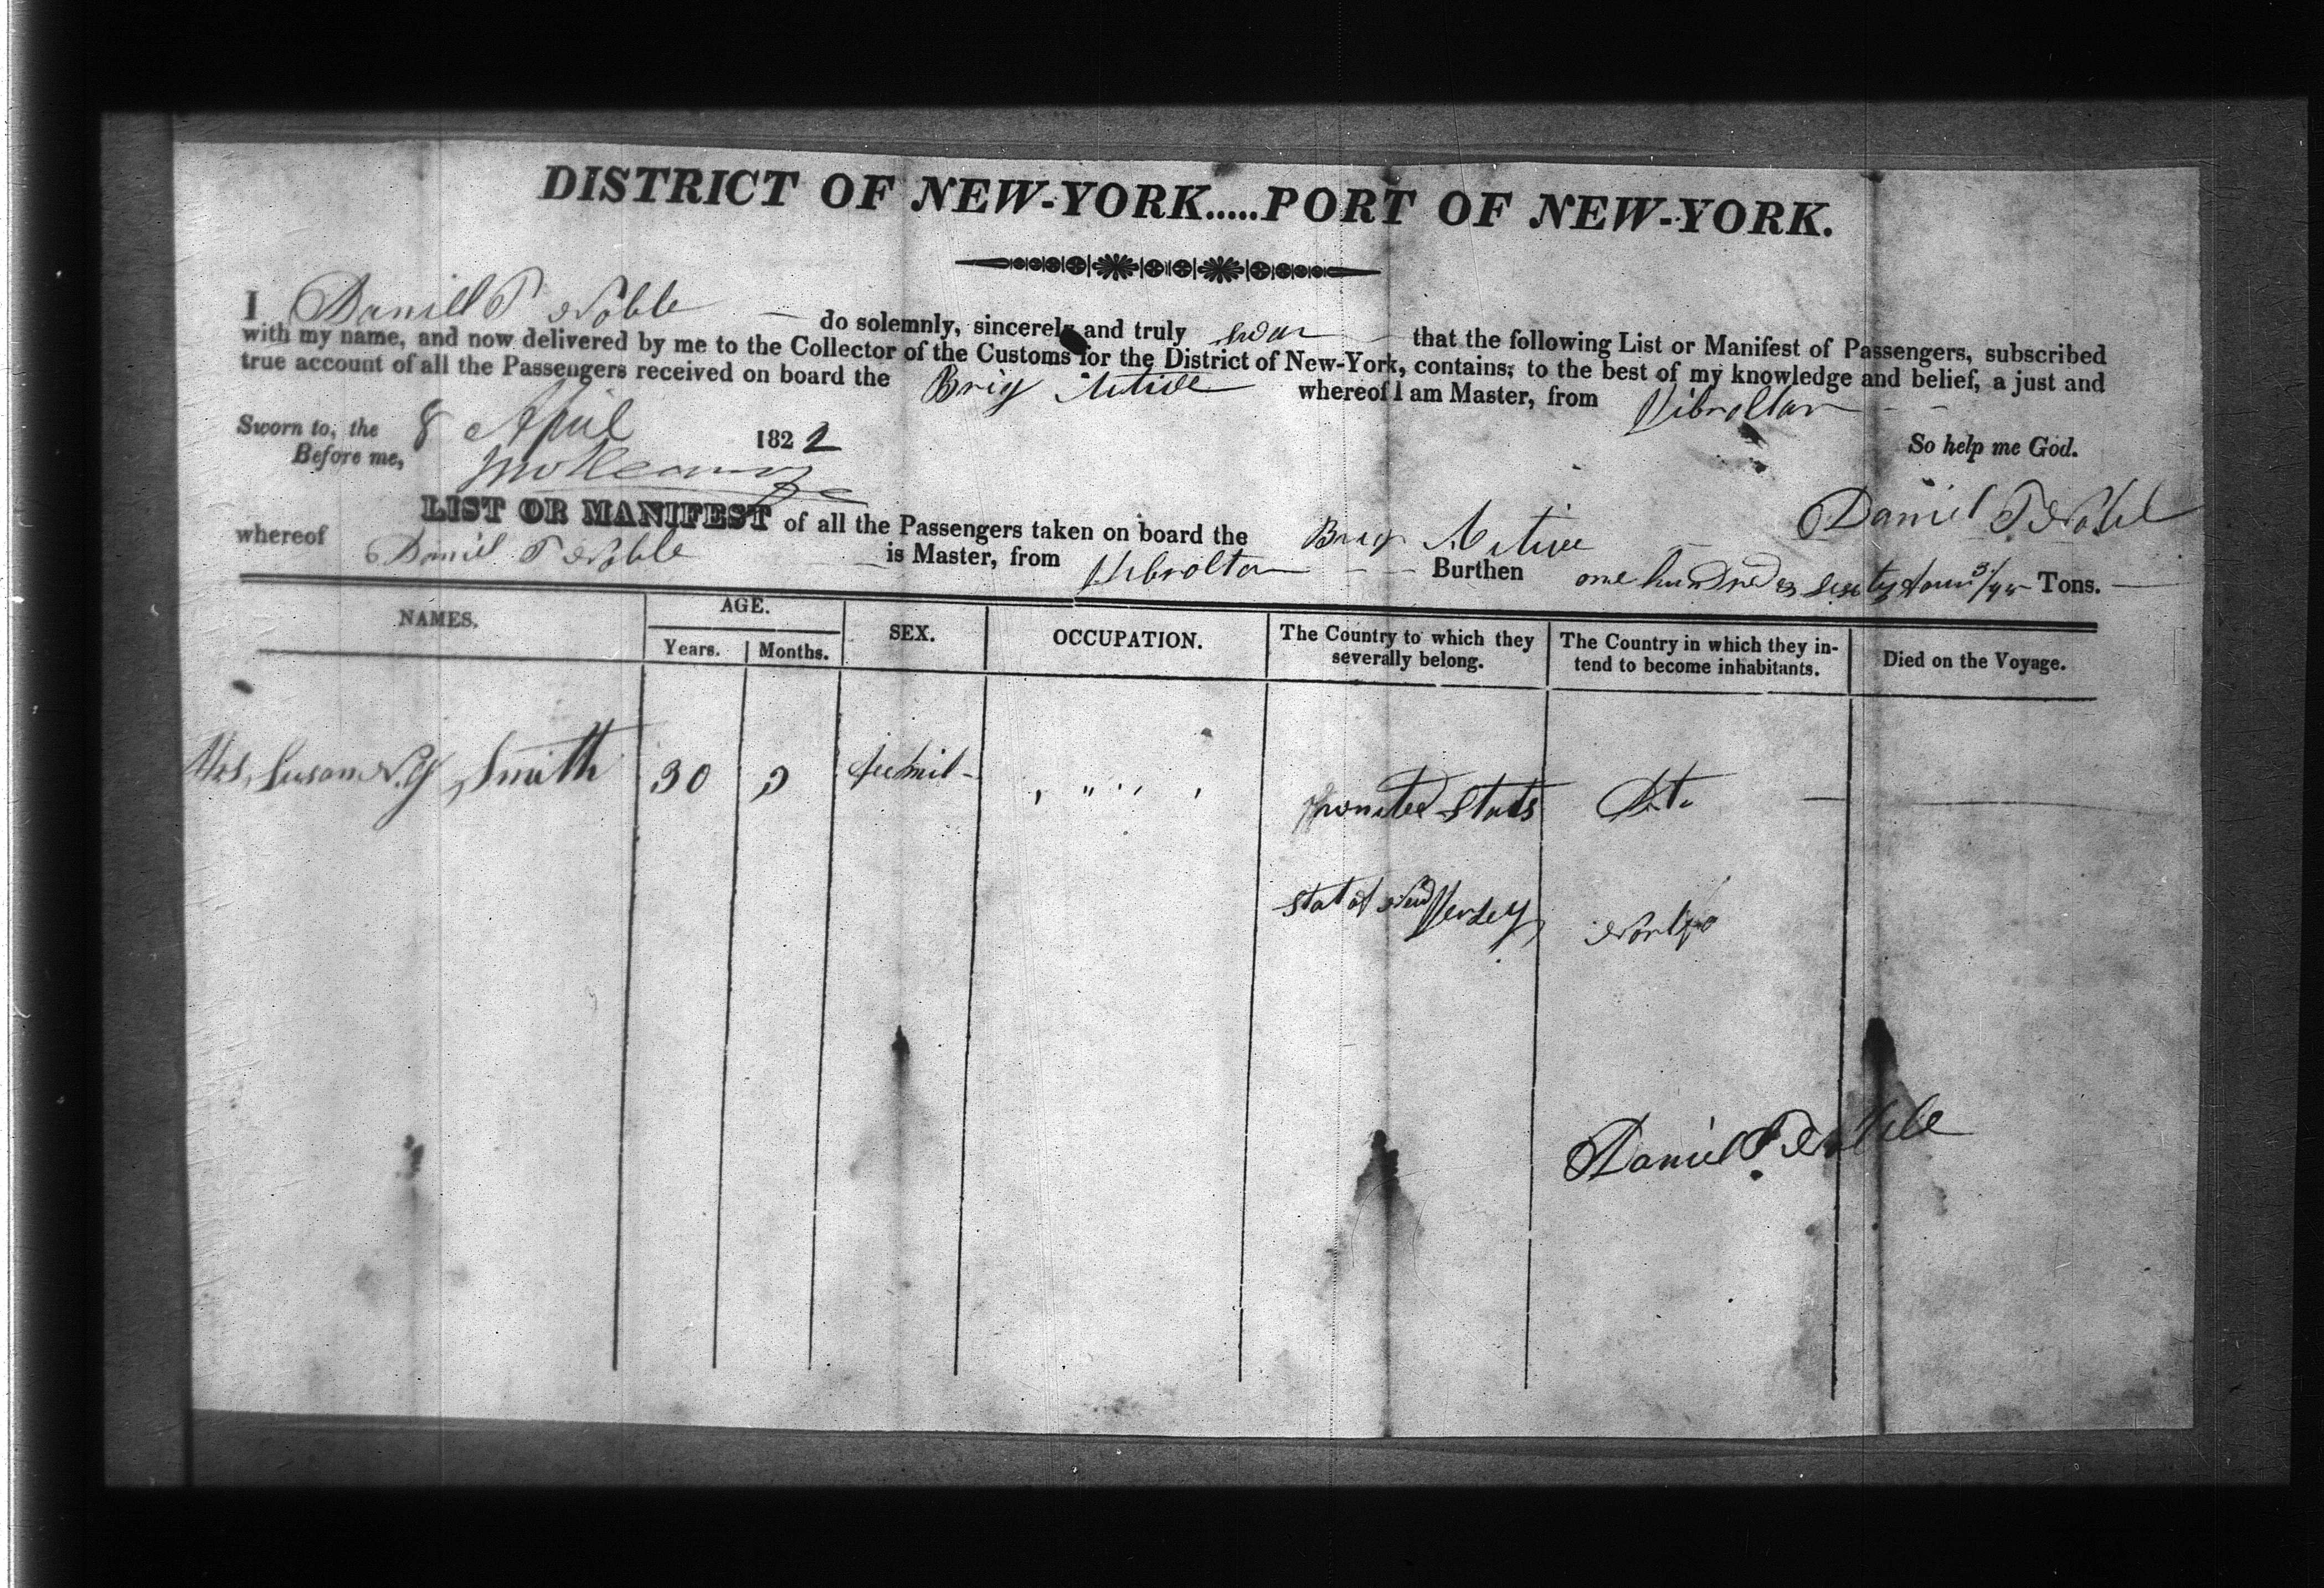 DISTRICT OF NEW-YORK.....PORT OF NEW-YORK.
I Daniell T Noble do solemnly, sincerely and truly swear that the following List or Manifest of Passengers, subscribed
with my name, and now delivered by me to the Collector of the Customs for the District of New-York, contains, to the best of my knowledge and belief, a just and
true account of all the Passengers received on board the Brig Active whereof I am Master, from Gibraltar
Sworn to, the 8 April 1822
So help me God.
Before me,
Daniel T Noble
LIST OR MANIFEST of all the Passengers taken on board the Brig Active
whereof Daniel T Noble is Master, from Gibroltar Burthen one hundred & sixty four Tons.
NAMES. AGE. SEX. OCCUPATION. The Country to which they severally belong. The Country in which they intend to become inhabitants. Died on the Voyage.
Years. Months.
Mrs. Susan Smith 30 3 United Stats Dto
Stat of New Jersey
Daniel T Noble